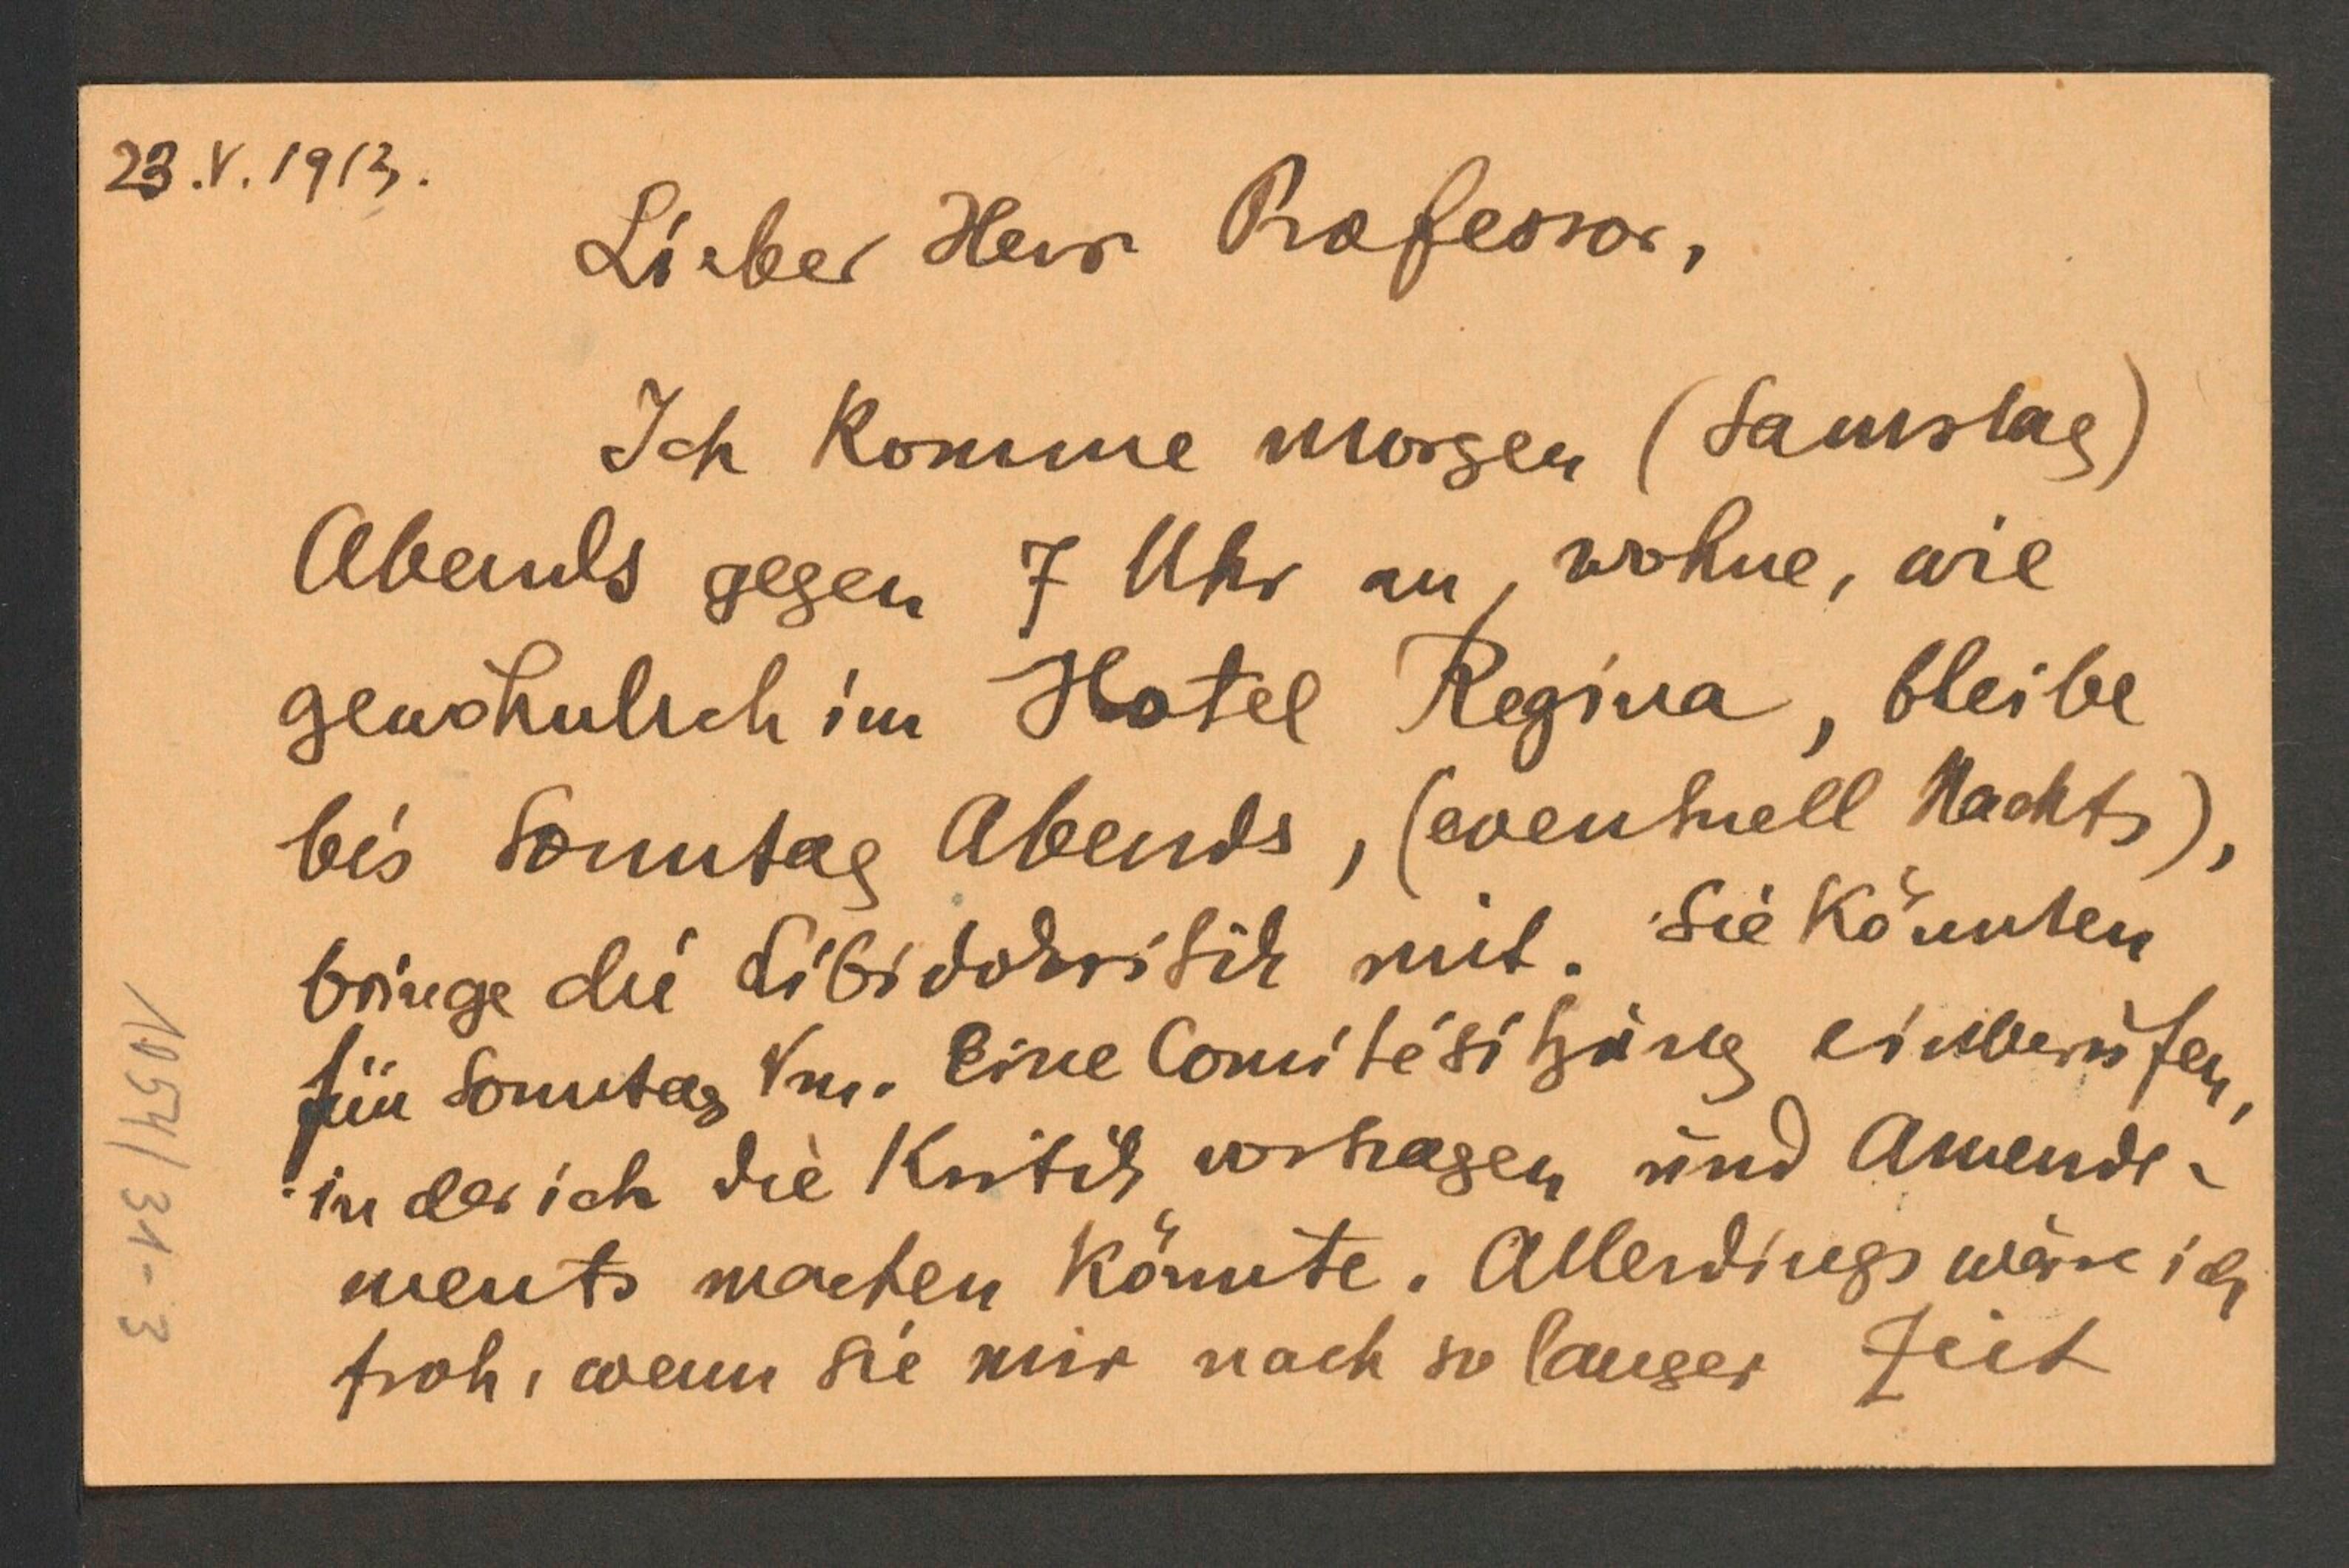 23.V.1913.
Lieber Herr Professor,
Ich komme morgen (Samstag)
Abends gegen 7 Uhr an, wohne, wie
gewöhnlich im Hotel Regina, bleibe
bis Sonntag Abends, (eventuell Nachts),
bringe die Libidokritik mit. Sie könnten
für Sonntag Vm. eine Comitésitzung einberufen,
in der ich die Kritik vortragen und Amende-
ments machen könnte. Allerdings wäre ich
froh, wenn Sie mir nach so langer Zeit
1054/31-3